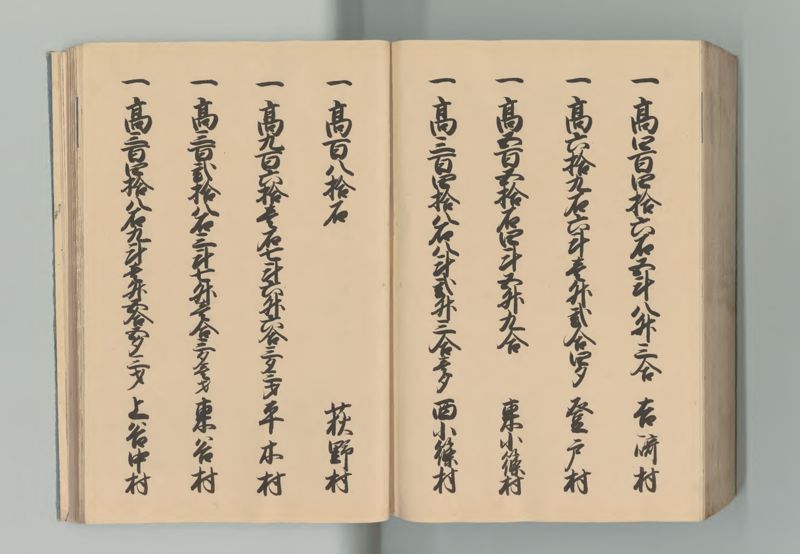 一 高四百四拾六石五斗八升三合 吉崎村
一 高六拾九石六斗壱升弐合四夕 登戸村
一 高五百五拾石四斗五升九合 東小篠村
一 高三百四拾八石八斗弐升三合壱夕 西小篠村
一 高百八拾石 荻野村
一 高九百六拾壱石七斗六升六合三夕三才 平木村
一 高三百弐拾八石三斗七升壱合三夕壱才 東谷村
一 高三百四拾八石九斗壱升五合五夕二才 上谷中村